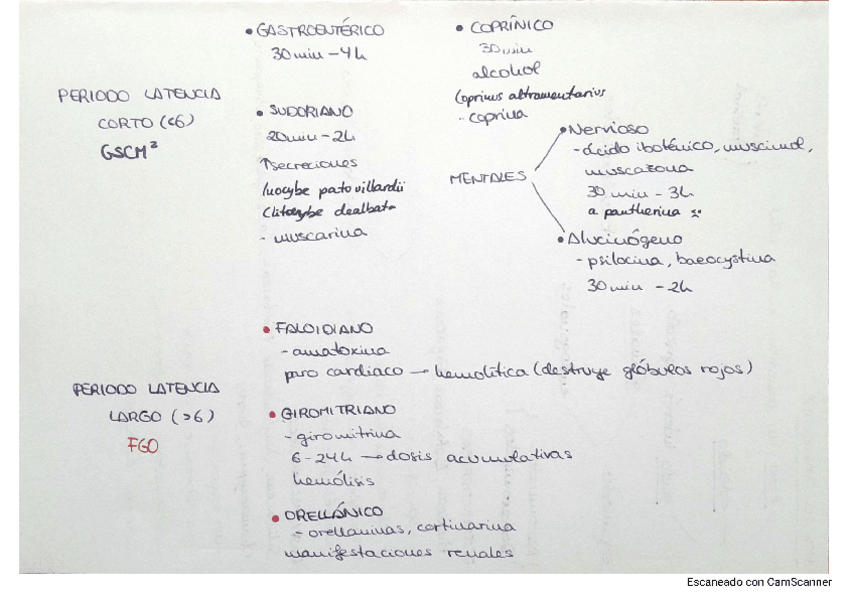 PERIODO LATENCIA
CORTO (<6)
GSCM²
• GASTROENTÉRICO
30 min - 4h
• SUDORIANO
20 min - 2h
↑secreciones
Inocybe patovillardii
Clitocybe dealbata
- muscarina
• COPRÍNICO
30 min
alcohol
Coprinus altramentarius
- coprina
MENTALES
• Nervioso
- ácido iboténico, muscimol,
muscazona
30 min - 3h
a pantherina
• Alucinógeno
- psilocina, baeocystina
30 min - 2h
PERIODO LATENCIA
LARGO (>6)
FGO
• FALOIDIANO
- amatoxina
paro cardiaco → hemolítica (destruye glóbulos rojos)
• GIROMITRIANO
- giromitrina
6-24h → dosis acumulativas
hemólisis
• ORELLÁNICO
- orellaninas, cortinarina
manifestaciones renales
Escaneado con CamScanner